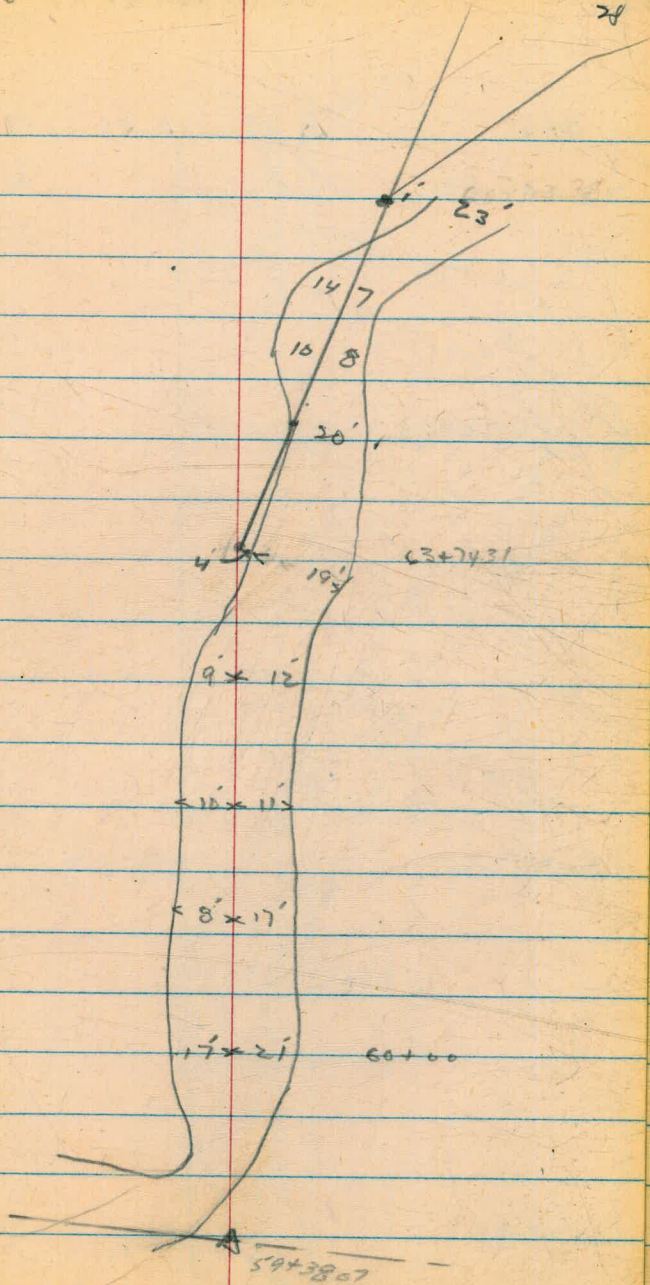 28
1'
23'
14 7
10 8
20'
4' 63+74.31
19'
9' x 12'
10' x 11'
8' x 17'
17' x 21' 60+00
59+38.07